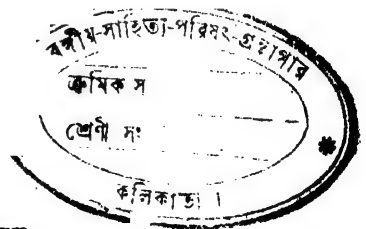 বঙ্গীয়-সাহিত্য-পরিষৎ-গ্রন্থাগার
ক্রমিক স
শ্রেণী সং
কলিকাতা ।